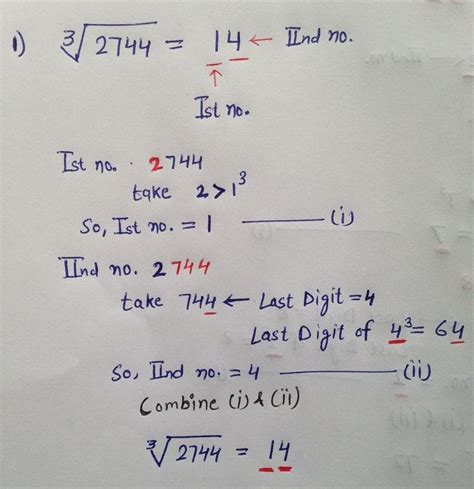 1) ∛2744 = 14 ← IInd no.
↑
Ist no.
Ist no. . 2744
take 2>1³
So, Ist no. = 1 ——— (i)
IInd no. 2744
take 744 ← Last Digit = 4
Last Digit of 4³= 64
So, IInd no. = 4 ——— (ii)
Combine (i) & (ii)
∛2744 = 14